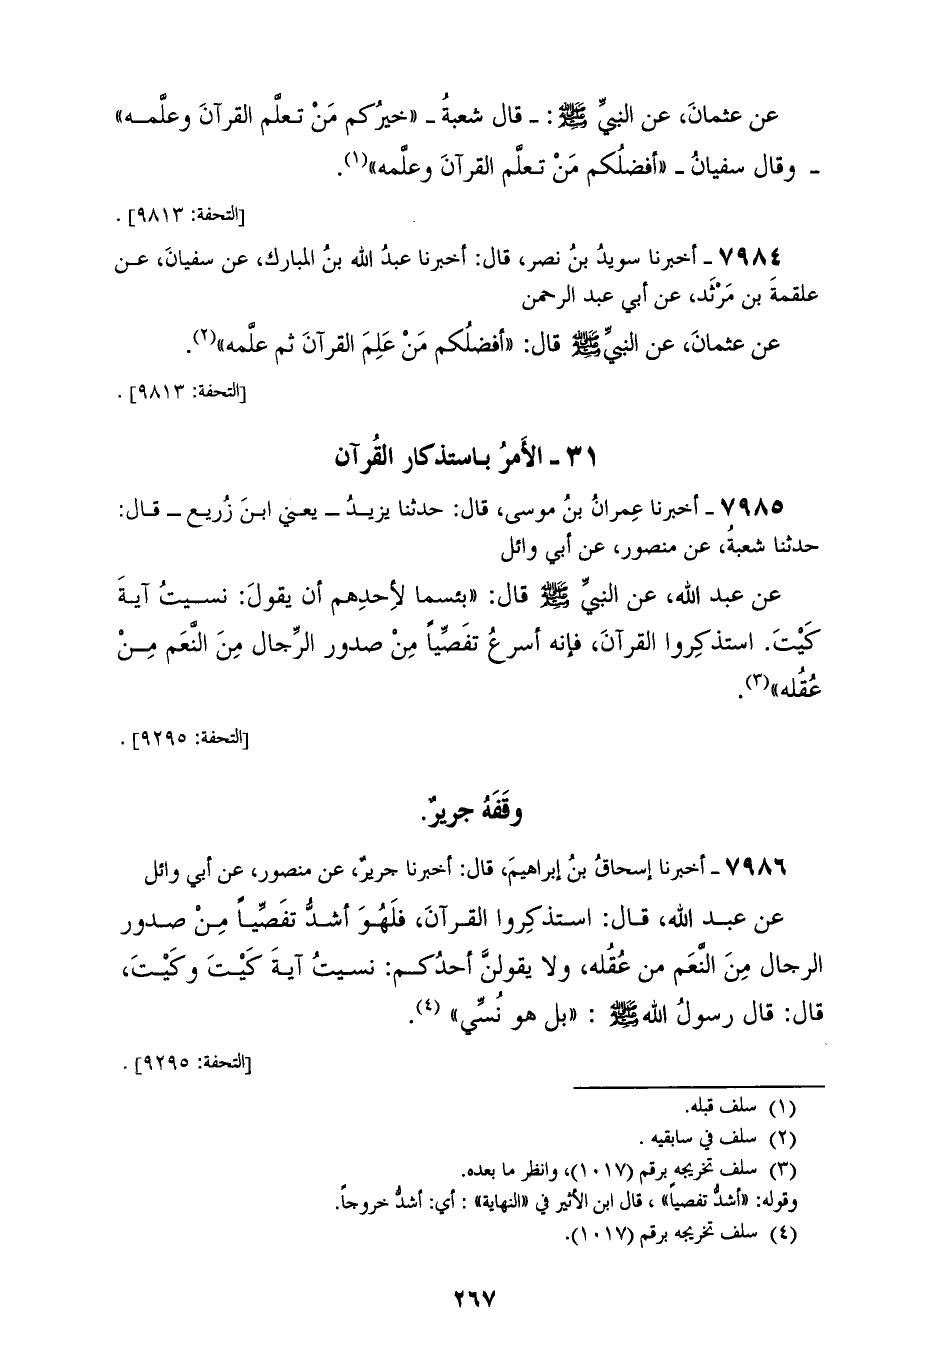 عن عثمانَ، عن النبيِّ ﷺ : ـ قال شعبةُ ـ «خيرُكم مَنْ تعلَّم القرآنَ وعلَّمه»
ـ وقال سفيانُ ـ «أفضلُكم مَنْ تعلَّم القرآنَ وعلَّمه»(١).
[التحفة: ٩٨١٣] .
٧٩٨٤ ـ أخبرنا سويدُ بنُ نصر، قال: أخبرنا عبدُ الله بنُ المبارك، عن سفيانَ، عن
علقمةَ بن مَرْثَد، عن أبي عبد الرحمن
عن عثمانَ، عن النبيِّ ﷺ قال: «أفضلُكم مَنْ عَلِمَ القرآنَ ثم علَّمه»(٢).
[التحفة: ٩٨١٣] .
٣١ ـ الأَمرُ باستذكار القُرآن
٧٩٨٥ ـ أخبرنا عِمرانُ بنُ موسى، قال: حدثنا يزيدُ ــ يعني ابنَ زُريع ــ قال:
حدثنا شعبةُ، عن منصور، عن أبي وائل
عن عبد الله، عن النبيِّ ﷺ قال: «بئسما لأحدِهم أن يقولَ: نسيتُ آيةَ
كَيْتَ. استذكِروا القرآنَ، فإنه أسرعُ تفَصِّياً مِنْ صدور الرِّجال مِنَ النَّعَم مِنْ
عُقُله»(٣).
[التحفة: ٩٢٩٥] .
وقَفَهُ جريرٌ.
٧٩٨٦ ـ أخبرنا إسحاقُ بنُ إبراهيمَ، قال: أخبرنا جريرٌ، عن منصور، عن أبي وائل
عن عبد الله، قال: استذكِروا القرآنَ، فلَهُوَ أشدُّ تفَصِّياً مِنْ صدور
الرجال مِنَ النَّعَم من عُقُله، ولا يقولنَّ أحدُكم: نسيتُ آيةَ كَيْتَ وكَيْتَ،
قال: قال رسولُ الله ﷺ : «بل هو نُسِّي» (٤).
[التحفة: ٩٢٩٥] .
(١) سلف قبله.
(٢) سلف في سابقيه .
(٣) سلف تخريجه برقم (١٠١٧)، وانظر ما بعده.
وقوله: «أشدُّ تفصياً» ، قال ابن الأثير في «النهاية» : أي: أشدُّ خروجاً.
(٤) سلف تخريجه برقم (١٠١٧).
٢٦٧